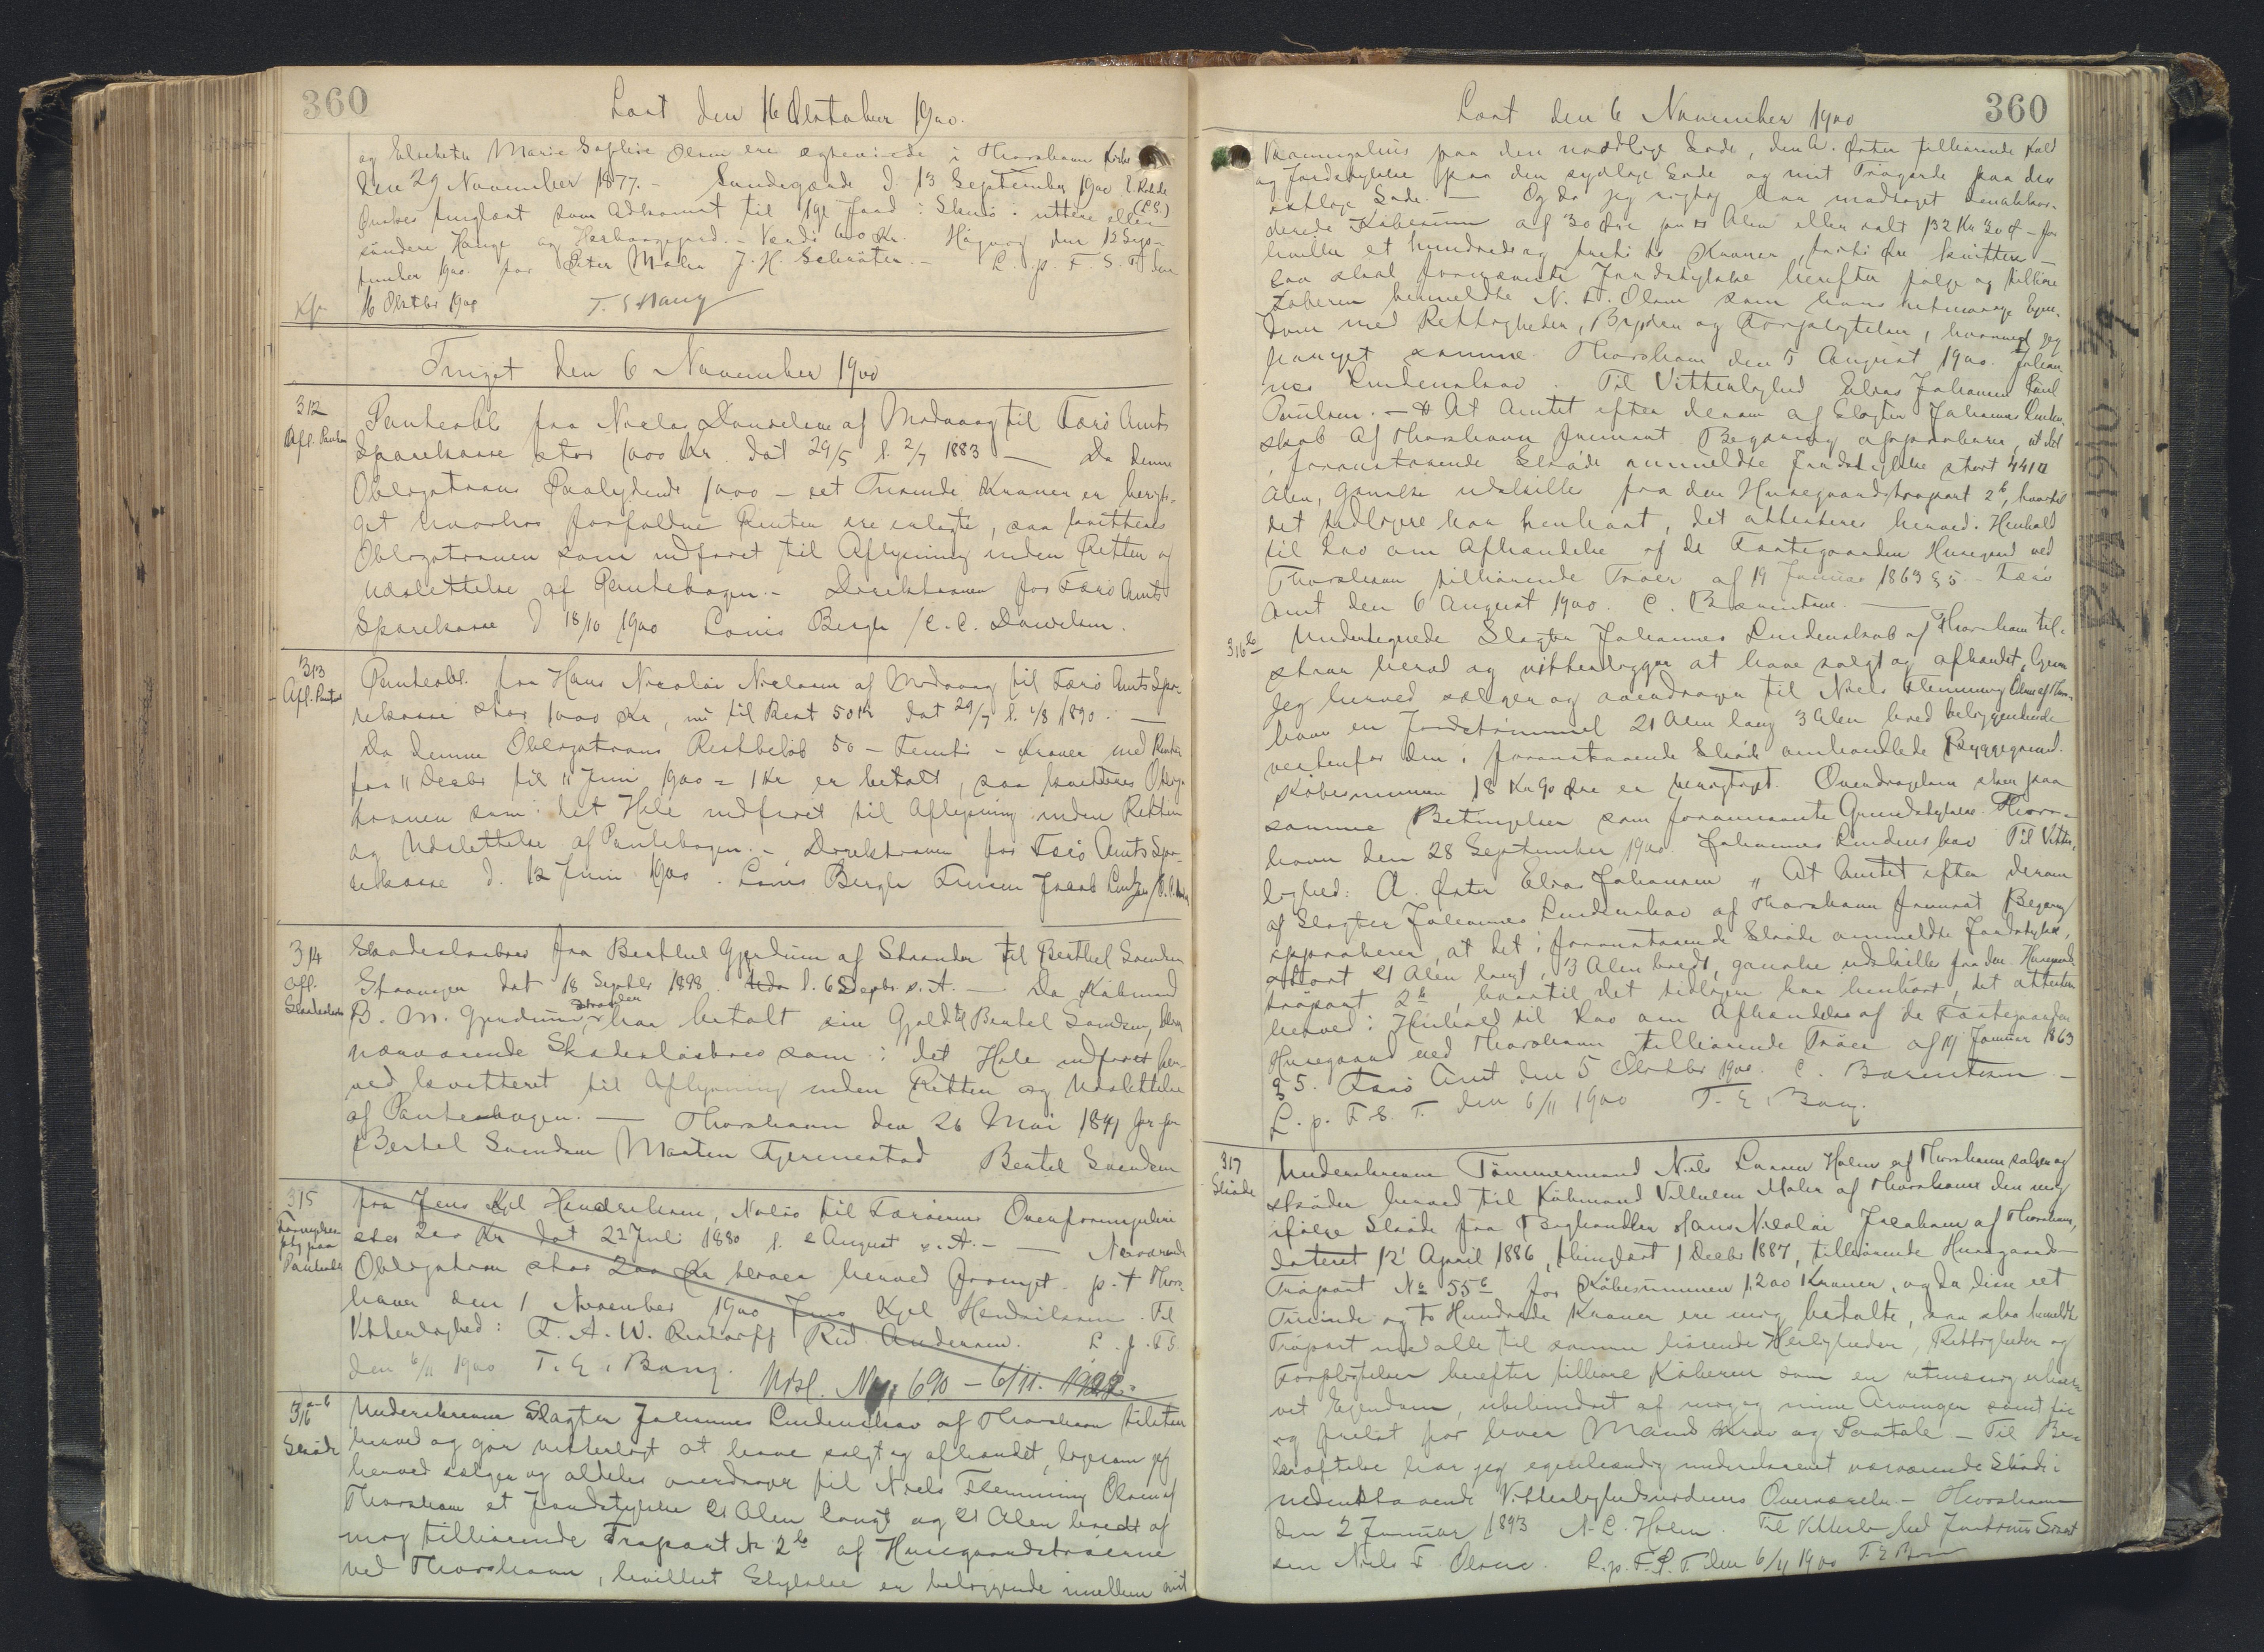 360
Læst den 16 Oktober 1900.
og Elsebeth Marie Sophie Olsen ere ægteviede i Thorshavn Kirke
den 29 November 1877. – Sandegærde d. 13 September 1900
Ønskes tinglæst som Adkomst til 1 gl Jord i Skuø
Hauge og Værdi 600 Kr. den 12 Sep-
tember 1900. for Peter Mohr J. H. Schrøter. – L. p. F. S. T. den
16 Oktbr 1900
Tinget den 6 November 1900
312
Afl. Pantobl
Panteobl fra Niclas Danielsen af Midvaag til Færø Amts
Sparekasse stor 1000 Kr. dat 29/5 l. 2/7 1883 — Da denne
Obligations Paalydende 1000 – et Tusinde Kroner er berigti-
get hvorhos forfaldne Renter ere erlagte, saa kvitteres
Obligationen som indfriet til Aflysning inden Retten og
Udslettelse af Pantebogen. – Direktionen for Færø Amts
Sparekasse d 18/10 1900 Louis Bergh / C. C. Danielsen.
313
Afl. Pantobl
Panteobl. fra Hans Nicolai Nielsen af Midvaag til Færø Amts Spa-
rekasse stor 1000 Kr, nu til Rest 50 Kr dat 29/7 l. 1/8 1890. —
Da denne Obligations Restbeløb 50 – Femti – Kroner med Renter
fra 11 Decbr til 11 Juni 1900 = 1 Kr er betalt, saa kvitteres Obliga-
tionen som i det Hele indfriet til Aflysning inden Retten
og Udslettelse af Pantebogen. – Direktionen for Færø Amts Spa-
rekasse d. 12 Juni 1900. Louis Bergh Jacob Lützen
314
Afl.
Skadesløsbr
Skadesløsbrev fra Berthel Gjerdum af Strander til Berthel Svendsen
Stavanger dat 18 Septbr 1898. l. 6 Decbr s. A. — Da Købmand
B. M. Gjerdum, Strander har betalt sin Gjæld til Bertel Svendsen, bliver
nærværende Skadesløsbrev som i det Hele indfriet her-
ved kvitteret til Aflysning inden Retten og Udslettelse
af Pantebogen. — Thorshavn den 26 Mai 1899 for
Bertel Svendsen Morten Bertel Svendsen
315
Fornyelses
paateg paa
Panteobl
fra Jens Kjel Hendriksen, Nolsø til Færøernes Overformynderi
stor 200 Kr dat 22 Juli 1880 l. 2 August s. A. — Nærværende
Obligation stor 200 Kr bliver herved fornyet p. t Thors-
havn den 1 November 1900 Jens Kjel Hendriksen. Til
Vitterlighed: F. A. W. Restorff Rud. Andersen. L. p. F. S.
den 6/11 1900 T. E. Bang. Udsl. No 690 – 6/11. 1922.
316 a-b
Skøde
Underskrevne Slagter Johannes Lindenskov af Thorshavn tilstaar
herved og gør vitterligt at have solgt og afhændet, ligesom jeg
herved sælger og aldeles overdrager til Niels Flemming Olsen af
Thorshavn et Jordstykke 21 Alen langt og 21 Alen bredt af
mig tilhørende Trøpart No 2 b af Husegaardstrøerne
ved Thorshavn, hvilket Stykke er beliggende imellem mit
360
Læst den 6 November 1900
paa den nordlige Side, den A. Øster tilhørende Kald
og Jordstykke paa den sydlige Side og mit Trøgærde paa den
østlige Side. — Og da jeg rigtig har modtaget den akkor-
derede Købesum af 30 Øre pr □ Alen eller ialt 132 Kr 30 Ø – for
hvilke et Hundrede og treti to Kroner, treti Øre kvitteres —
saa skal fornævnte Jordstykke herefter følge og tilhøre
Køberen bemeldte N. F. Olsen som hans retmæssige Eien-
dom med Rettigheder, Byrder og Forpligtelser, hvormed jeg
har ejet samme. Thorshavn den 5 August 1900. Johan-
nes Lindenskov. Til Vitterlighed Elias Johansen Poul
Poulsen. — At Amtet efter derom af Slagter Johannes Linden-
skov af Thorshavn fremsat Begæring approberer, at det
i foranstaaende Skøde ommeldte Jordstykke stort 441 □
Alen, ganske udskilles fra den Husegaardstrøpart 2 b, hvortil
det tidligere har henhørt, det attesteres herved i Henhold
til Lov om Afhændelse af de Fæstegaarden Husegaard ved
Thorshavn tilhørende Trøer af 19 Januar 1863 § 5 – Færø
Amt den 6 August 1900. C. Bærentsen. —
316 b
Undertegnede Slagter Johannes Lindenskov af Thorshavn til-
staar herved og vitterliggør at have solgt og afhændet, ligesom
jeg herved sælger og overdrager til Niels Flemming Olsen af Thors-
havn en Jordstrimmel 21 Alen lang 3 Alen bred beliggende
vestenfor den i foranstaaende Skøde omhandlede Byggegrund.
Købesummen 18 Kr 90 Øre er berigtiget. Overdragelsen sker paa
samme Betingelser som forannævnte Grundstykke. Thors-
havn den 28 September 1900. Johannes Lindenskov Til Vitter-
lighed: A. Øster Elias Johansen „ At Amtet efter derom
af Slagter Johannes Lindenskov af Thorshavn fremsat Begæring
approberer, at det i foranstaaende Skøde ommeldte Jordstykke,
stort 21 Alen langt, 3 Alen bredt, ganske udskilles fra den Husegaards-
trøpart 2 b, hvortil det tidligere har henhørt, det attesteres
herved i Henhold til Lov om Afhændelse af de Fæstegaarden
Husegaard ved Thorshavn tilhørende Trøer af 19 Januar 1863
§ 5. Færø Amt den 5 Oktbr 1900. C. Bærentsen —
L. p. F. S. T. den 6/11 1900 T. E. Bang.
317
Skøde
Underskrevne Tømmermand Niels Larsen Holm af Thorshavn sælger og
skøder herved til Købmand Villhelm Mohr af Thorshavn den mig
ifølge Skøde fra Boghandler Hans Nicolai Jacobsen af Thorshavn,
dateret 12 April 1886, thinglæst 1 Decbr 1887, tilhørende Husegaards-
Trøpart No 55 c for Købesummen 1200 Kroner, og da disse et
Tusinde og to Hundrede Kroner ere mig betalte, saa skal bemeldte
Trøpart med alle til samme hørende Herligheder, Rettigheder og
Forpligtelser herefter tilhøre Køberen som en retmæssig erhver-
vet Ejendom, ubehindret af mig og mine Arvinger samt fri
og frelst for hver Mands Krav og Paatale – Til Be-
kræftelse har jeg egenhændig underskrevet nærværende Skøde i
nedenstaaende Vitterlighedsvidners Overværelse – Thorshavn
den 2 Januar 1893 N. L. Holm. Til Vitterlighed
sen Niels F. Olsen. L. p. F. S. T. den 6/11 1900 T. E. Bang